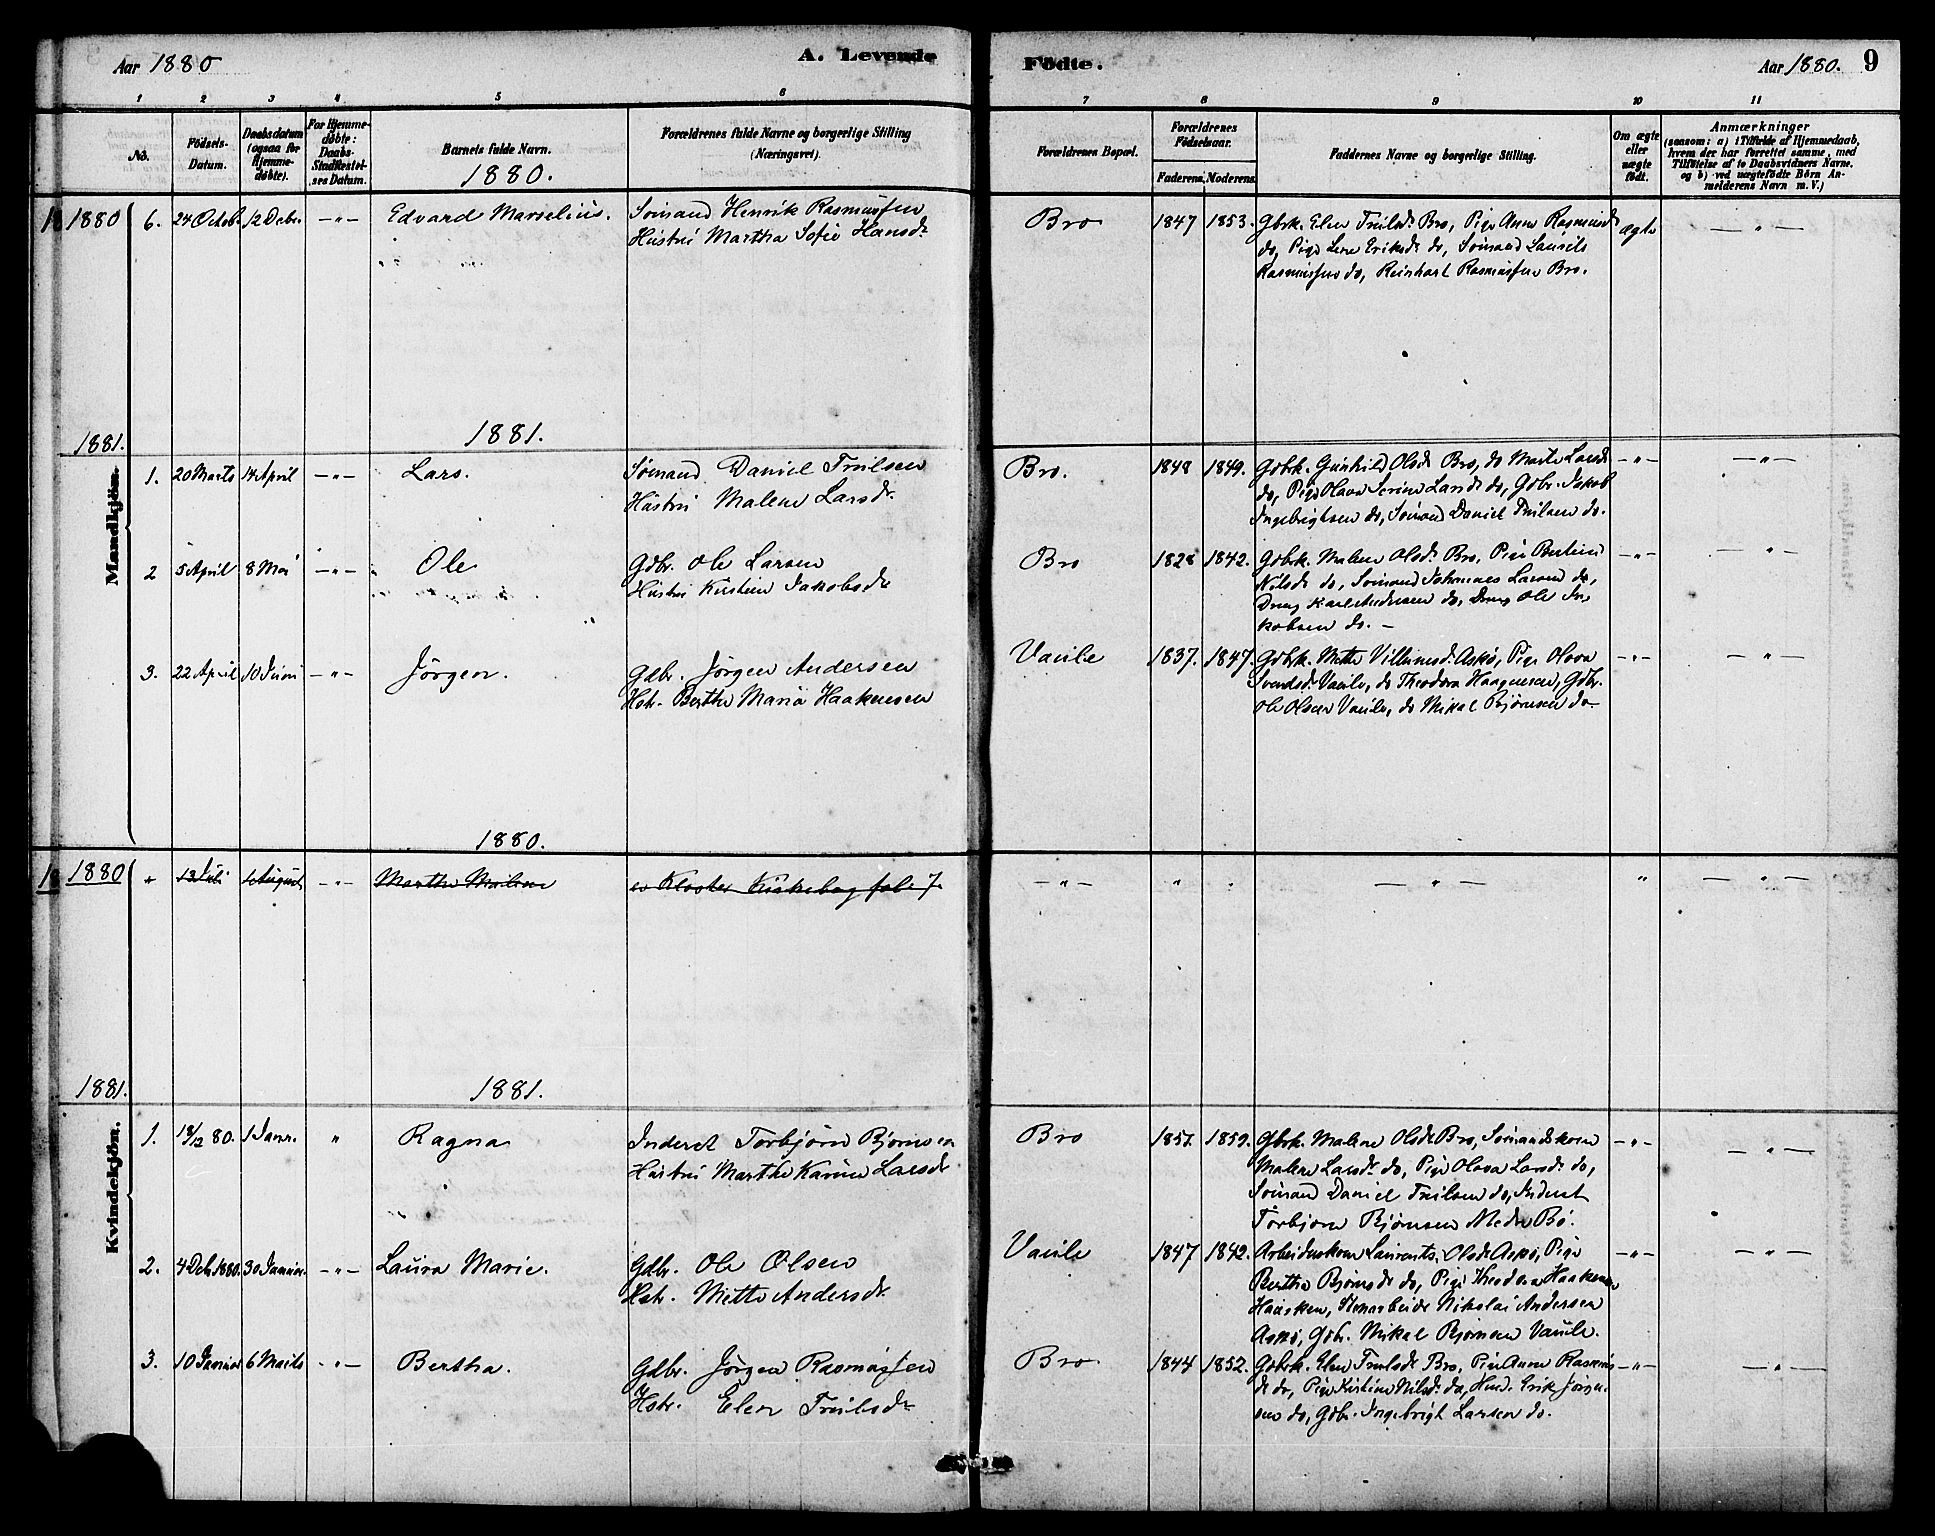 Aar 1880
A. Levende
Födte.
Aar 1880. 9
1 2 3 4 5 6 7 8 9 10 11
No.
Födsels-
Datum.
Daabsdatum
(ogsaa for
Hjemme-
döbte).
For Hjemme-
døbte:
Daabs-
Stadfæstel-
ses Datum.
Barnets fulde Navn.
1880.
Forældrenes fulde Navne og borgerlige Stilling
(Næringsvei).
Forældrenes Bopæl.
Forældrenes
Födselsaar.
Faderens. Moderens.
Faddernes Navne og borgerlige Stilling.
Om ægte
eller
uægte
født.
Anmærkninger
(saasom: a) i Tilfælde af Hjemmedaab,
hvem der har forrettet samme, med
Tilföielse af to Daabsvidners Navne.
og b) ved uægtefødte Börn An-
melderens Navn m. V.)
18 1880 6. 24 Octob. 12 Debr. -„- Edvard Marselius.
Sømand Henrik Rasmussen
Hustru Martha Sofie Hansdr
Bro 1847 1853.
Gbrk. Elen Truilsdr Bro, Pige Anne Rasmusdr
do, Pige Lene Eriksdr do, Sømand Laurits
Rasmussen do, Reinhart Rasmussen Bro.
ægte -„-
1881. 1881.
Mandkjön.
1. 20 Marts 14 April -„- Lars.
Sømand Daniel Truilsen
Hustru Malene Larsdr.
Bro. 1848 1849.
Gdbrk. Gunhild Olsdr Bro, do Marte Larsdr
do, Pige Olava Serine Larsdr do, Gdbr. Jakob
Ingebrigtsen do, Sømand Daniel Truilsen do.
-„- -„-
2 5 April 8 Mai -„- Ole
Gdbr. Ole Larsen
Hustru Kirstine Jakobsdr
Bro 1828 1842.
Gdbrk. Malene Olsdr Bro, Pige Bertine
Nilsdr do, Sømand Johannes Larsen do,
Dreng Karl Andersen do, Dreng Ole Ja-
kobsen do. -
-„- -„-
3. 22 April 10 Juni -„- Jörgen.
Gdbr. Jörgen Andersen
Hstr. Berthe Maria Haakensen
Vaule 1837. 1847
Gdbrk. Mette Villumsdr. Askø, Pige Olava
Svendsdr Vaule, do Theodora Haagensen, Gdbr.
Ole Olsen Vaule, do Mikal Bjørnsen do-
-„- -„-
1880.
18 1880 „ 13 Juli 1 August -„- Martha Malene
se Kloster Kirkebog fol. 7.
-„- „ „ -„- „ -„-
1881. 1881.
Kvindekjön.
1. 18/12 80. 1 Janr. „ Ragna
Inderst Torbjörn Bjørnsen
Hustru Marthe Karine Larsdr
Bro 1857. 1859.
Gbrk. Malene Olsdr Bro, Sømandskone
Malene Larsdr do, Pige Olava Larsdr do,
Sømand Daniel Truilsen do, Inderst
Torbjörn Bjørnsen Nedre Bø.
-„- -„-
2. 4 Deb. 1880. 30 Januar. -„- Laura Marie.
Gdbr. Ole Olsen
Hstr. Mette Andersdr
Vaule 1847 1842.
Arbeiderskone Laurents. Olsdr Askø, Pige
Bertha Bjørnsdr do, Pige Theodora Haakensen
Hausken, Stenarbeider Nikolai Andersen
Askø, Gdbr. Mikal Bjørnsen Vaule.
-„- -„-
3. 10 Januar 6 Marts -„- Bertha.
Gdbr. Jörgen Rasmussen
Hstr. Elen Truilsdr
Bro 1844 1852.
Gdbrk. Elen Truilsdr Bro, Pige Anne Rasmus-
dr do, Pige Kirstine Nilsdr. do, Husd. Erik Jørgen-
sen do, Gdbr. Ingebrigt Larsen do.
-„- -„-